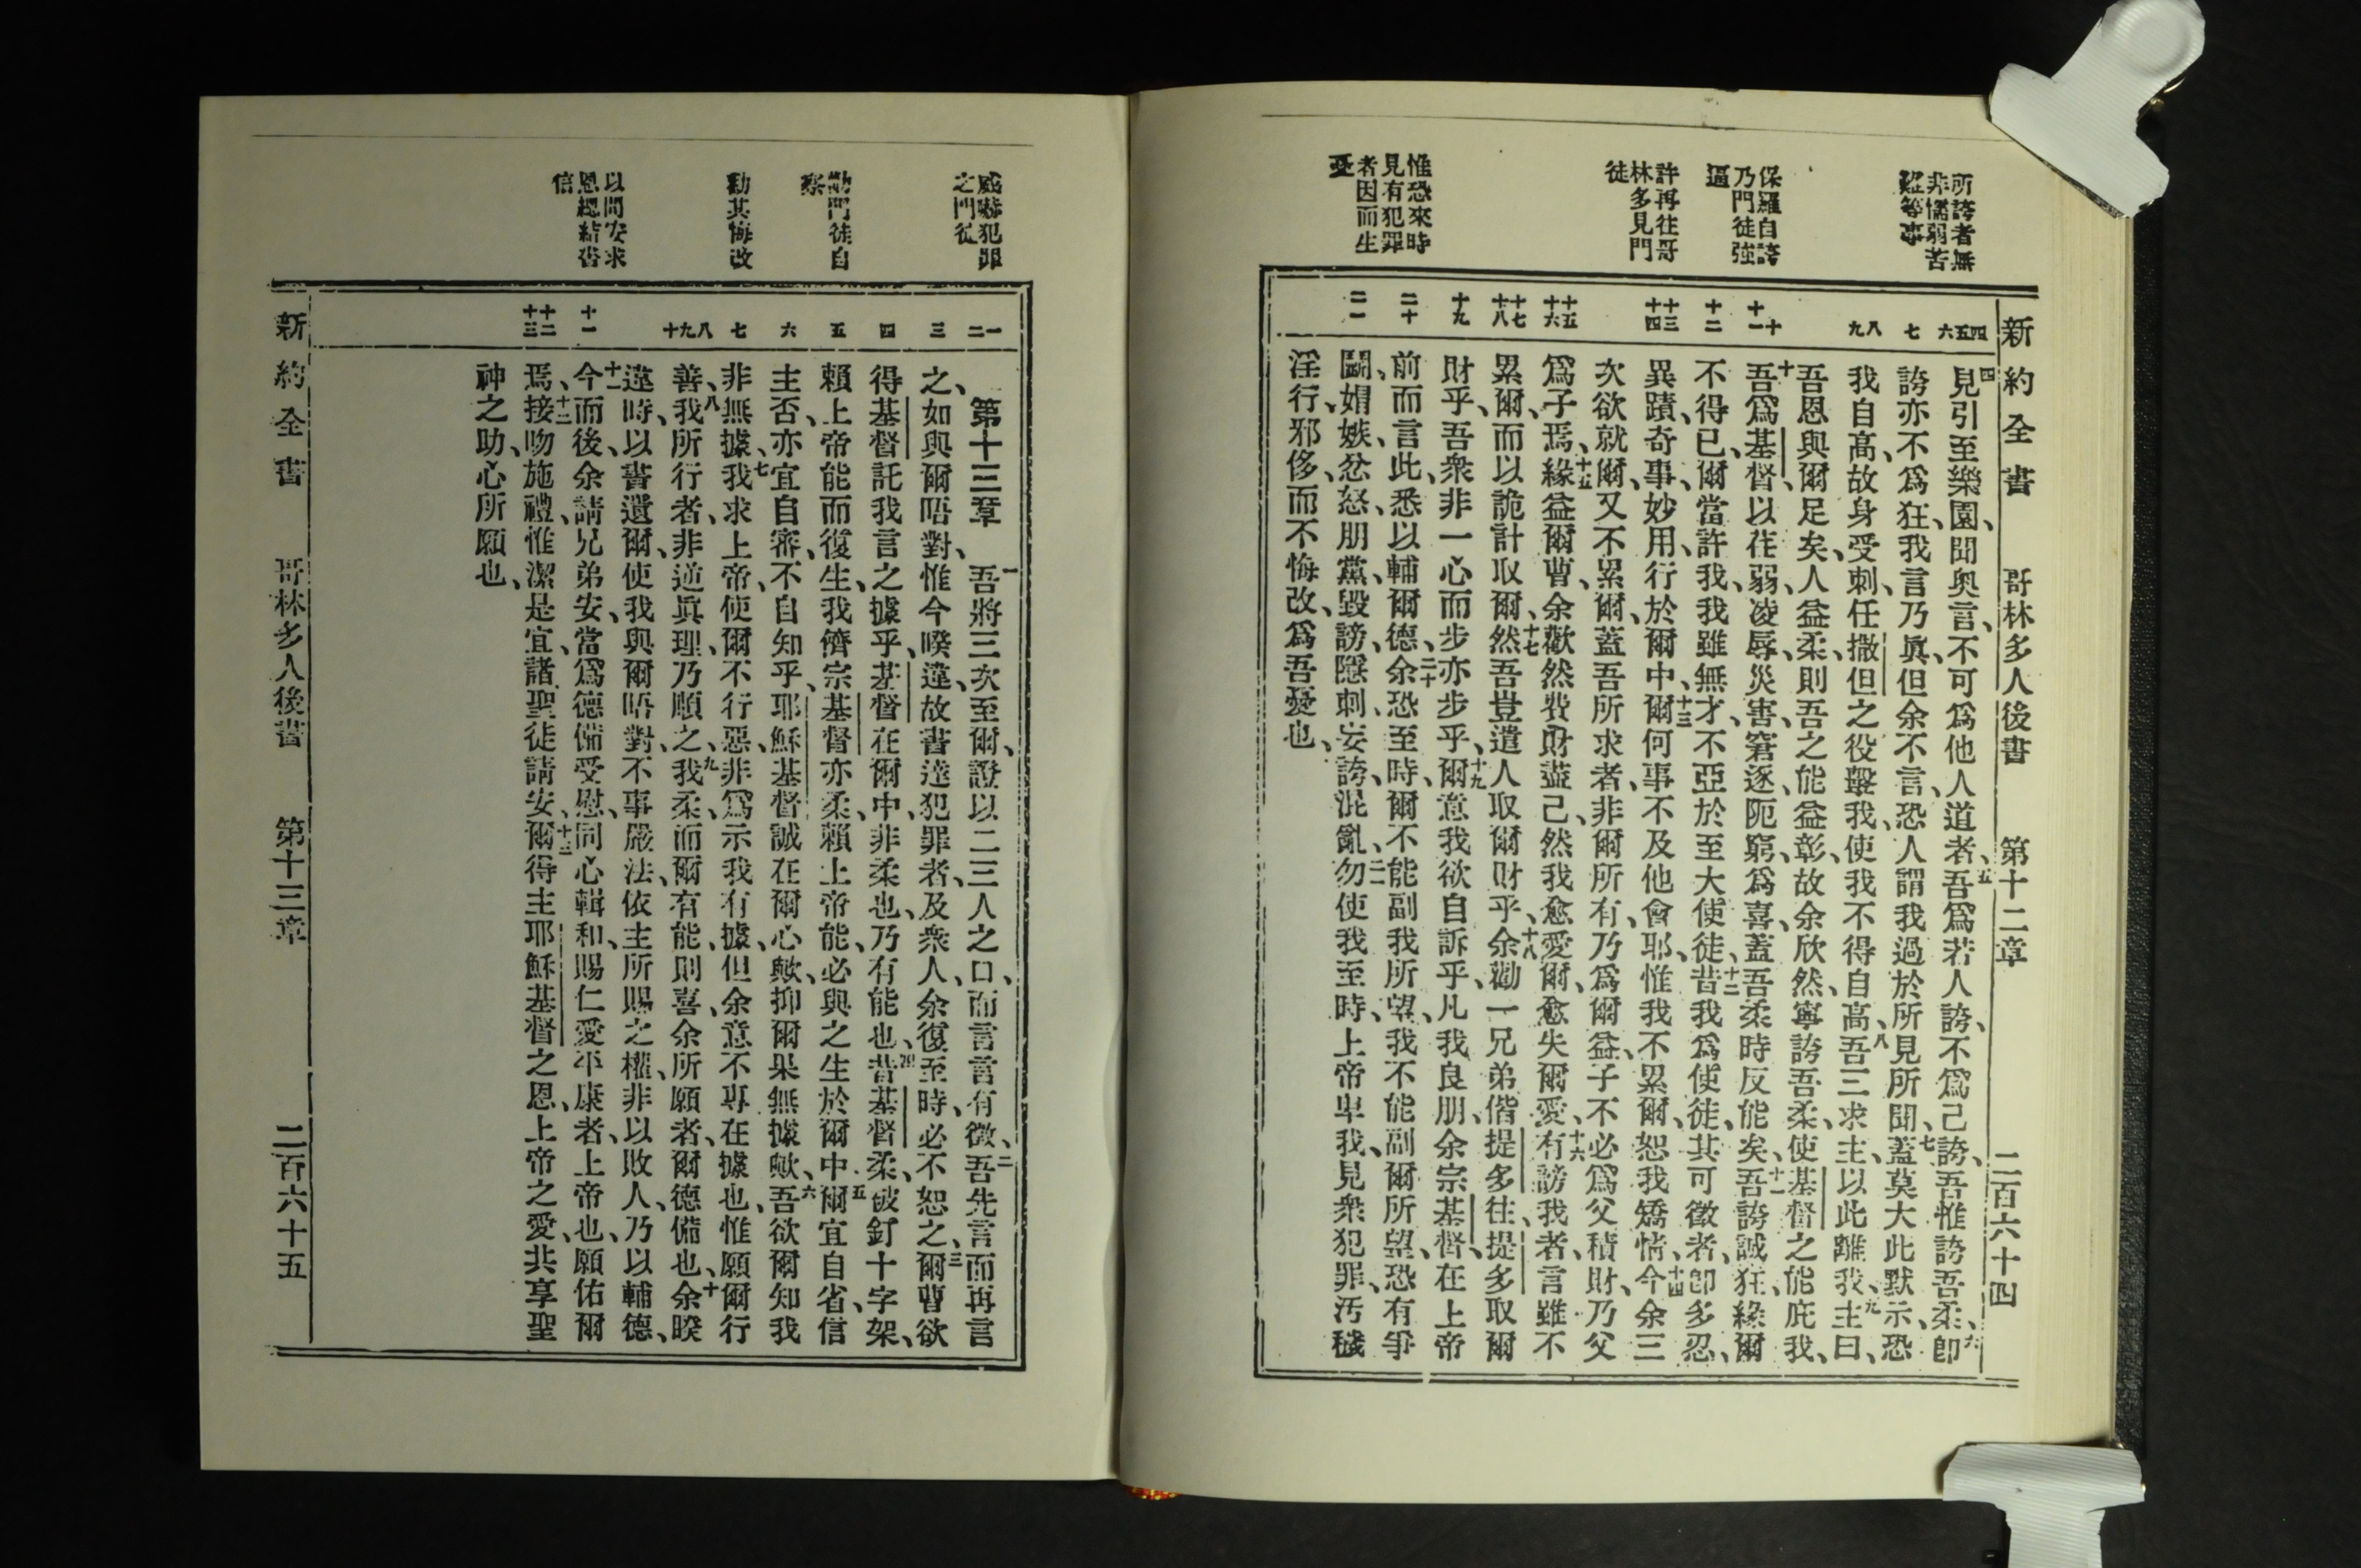 新約全書 哥林多人後書 第十二章 二百六十四
所誇者無
非懦弱苦
難等事
保羅自誇
乃門徒強
逼
許再往哥
林多見門
徒
惟恐來時
見有犯罪
者因而生
憂
四 五 六 七 八 九 十 十一 十二 十三 十四 十五 十六 十七 十八 十九 二十 二一
四見引至樂園、聞奧言、不可爲他人道者、五吾爲若人誇、不爲己誇、吾惟誇吾柔、六卽
誇亦不爲狂、我言乃眞、但余不言、恐人謂我過於所見所聞、七蓋莫大此默示、恐
我自高、故身受刺、任撒但之役擊我、使我不得自高、八吾三求主、以此離我、九主曰、
吾恩與爾足矣、人益柔、則吾之能益彰、故余欣然、寧誇吾柔、使基督之能庇我、
十吾爲基督、以荏弱、凌辱、災害、窘逐、阨窮、爲喜、蓋吾柔時反能矣、十一吾誇誠狂、緣爾
不得已、爾當許我、我雖無才、不亞於至大使徒、十二昔我爲使徒、其可徵者、卽多忍、
異蹟、奇事、妙用、行於爾中、十三爾何事不及他會耶、惟我不累爾、恕我矯情、十四今余三
次欲就爾、又不累爾、蓋吾所求者、非爾所有、乃爲爾益、子不必爲父積財、乃父
爲子焉、十五緣益爾曹、余歡然費財盡己、然我愈愛爾、愈失爾愛、十六有謗我者、言雖不
累爾、而以詭計取爾、十七然吾豈遣人取爾財乎、十八余勸一兄弟偕提多往、提多取爾
財乎、吾衆非一心而步亦步乎、十九爾意我欲自訴乎、凡我良朋、余宗基督、在上帝
前而言此、悉以輔爾德、二十余恐至時、爾不能副我所望、我不能副爾所望、恐有爭
鬬、媢嫉、忿怒、朋黨、毀謗、隱刺、妄誇、混亂、二一勿使我至時、上帝卑我、見衆犯罪、汚穢
淫行、邪侈、而不悔改、爲吾憂也、
威嚇犯罪
之門徒
勸門徒自
察
勸其悔改
以問安求
恩總結書
信
一 二 三 四 五 六 七 八 九 十 十一 十二 十三
第十三章 一吾將三次至爾、證以二三人之口、而言言有徵、二吾先言而再言
之、如與爾晤對、惟今暌違、故書達犯罪者、及衆人、余復至時、必不恕之、三爾曹欲
得基督託我言之據乎、基督在爾中、非柔也、乃有能也、四昔基督柔、被釘十字架、
賴上帝能而復生、我儕宗基督亦柔、賴上帝能、必與之生於爾中、五爾宜自省、信
主否、亦宜自審、不自知乎、耶穌基督誠在爾心歟、抑爾果無據歟、六吾欲爾知我
非無據、七我求上帝、使爾不行惡、非爲示我有據、但余意不專在據也、惟願爾行
善、八我所行者、非逆眞理、乃順之、九我柔、而爾有能、則喜、余所願者、爾德備也、十余暌
違時、以書遺爾、使我與爾晤對、不事嚴法、依主所賜之權、非以敗人、乃以輔德、
十一今而後、余請兄弟安、當爲德備、受慰、同心輯和、賜仁愛平康者、上帝也、願佑爾
焉、十二接吻施禮、惟潔是宜、諸聖徒請安、十三爾得主耶穌基督之恩、上帝之愛、共享聖
神之助、心所願也、
新約全書 哥林多人後書 第十三章 二百六十五